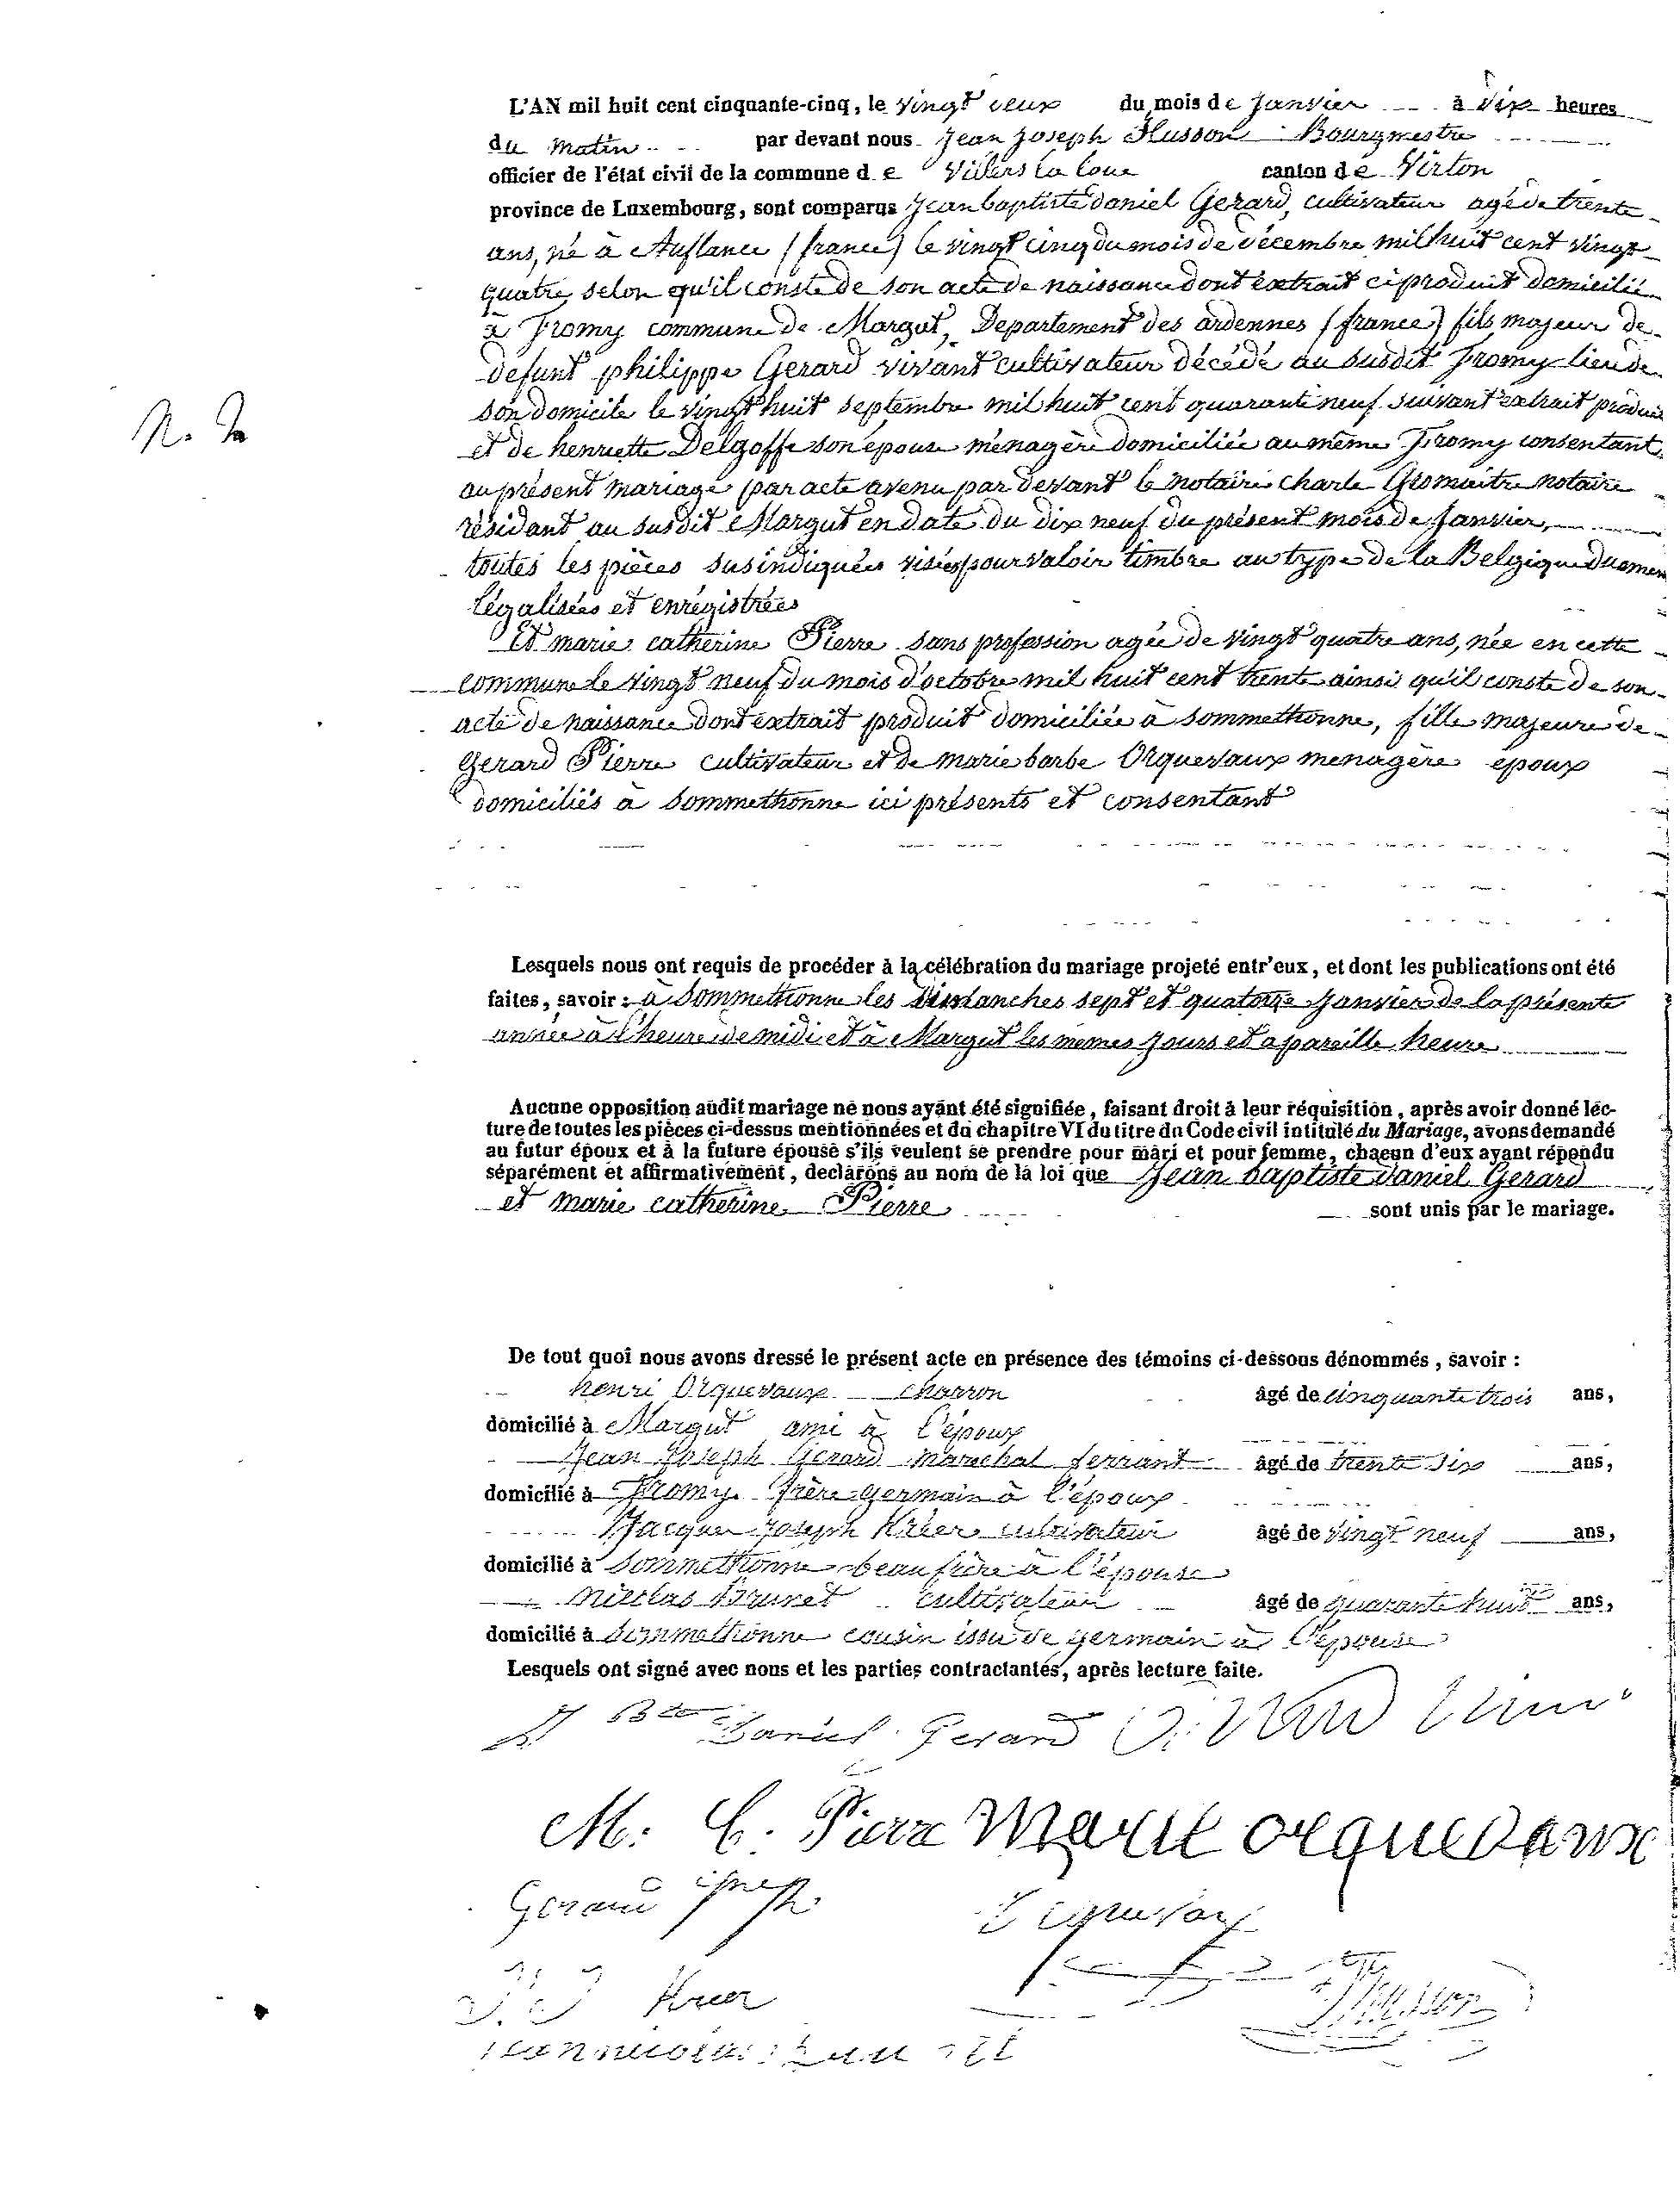 L'AN mil huit cent cinquante-cinq, le vingt deux du mois de Janvier à dix heures
du matin par devant nous Jean Joseph Husson Bourgmestre
officier de l'état civil de la commune de Villers la loue canton de Virton
province de Luxembourg, sont comparus Jean baptiste daniel Gerard, cultivateur agé de trente
ans, né à Auflance (france) le vingt cinq du mois de décembre mil huit cent vingt
quatre, selon qu'il conste de son acte de naissance dont extrait ci produit domicilié
à Fromy commune de Margut, Departement des ardennes (france) fils majeur de
défunt philippe Gerard vivant cultivateur décédé au susdit Fromy lieu de
son domicile le vingt huit septembre mil huit cent quarante neuf suivant extrait produit
N. 2
et de henriette Delgoffe son épouse ménagère domiciliée au même Fromy consentant
au présent mariage par acte avenu par devant le notaire charle Gromaitre notaire
résidant au susdit Margut en date du dix neuf du présent mois de Janvier,
toutes les pièces susindiquées visées pour valoir timbre au type de la Belgique duemen
légalisées et enrégistrées
Et marie catherine Pierre sans profession agée de vingt quatre ans, née en cette
commune le vingt neuf du mois d'octobre mil huit cent trente ainsi qu'il conste de son
acte de naissance dont extrait produit domiciliée à sommethonne, fille majeure de
Gerard Pierre cultivateur et de marie barbe Orquevaux menagère époux
domiciliés à sommethonne ici présents et consentant
Lesquels nous ont requis de procéder à la célébration du mariage projeté entr'eux, et dont les publications ont été
faites, savoir : à Sommethonne les Dimanches sept et quatorze Janvier de la présente
année à l'heure de midi et à Margut les mêmes jours et a pareille heure
Aucune opposition audit mariage ne nous ayant été signifiée, faisant droit à leur réquisition, après avoir donné lec-
ture de toutes les pièces ci-dessus mentionnées et du chapitre VI du titre du Code civil intitulé du Mariage, avons demandé
au futur époux et à la future épouse s'ils veulent se prendre pour mari et pour femme, chacun d'eux ayant répondu
séparément et affirmativement, declarons au nom de la loi que Jean baptiste daniel Gerard
et marie catherine Pierre sont unis par le mariage.
De tout quoi nous avons dressé le présent acte en présence des témoins ci-dessous dénommés, savoir :
henri Orquevaux charron âgé de cinquante trois ans,
domicilié à Margut ami à l'époux
Jean Joseph Gerard marechal ferrant âgé de trente six ans,
domicilié à Fromy frère germain à l'époux
Jacques Joseph Kréer cultivateur âgé de vingt neuf ans,
domicilié à Sommethonne beau frère à l'épouse
Nicolas Brunet cultivateur âgé de quarante huit ans,
domicilié à Sommethonne cousin issu de germain à l'épouse
Lesquels ont signé avec nous et les parties contractantes, après lecture faite.
J Bte Daniel Gerard
M. C. Pierre Marie orquevaux
Gerard Joseph
J. J Kreer Husson